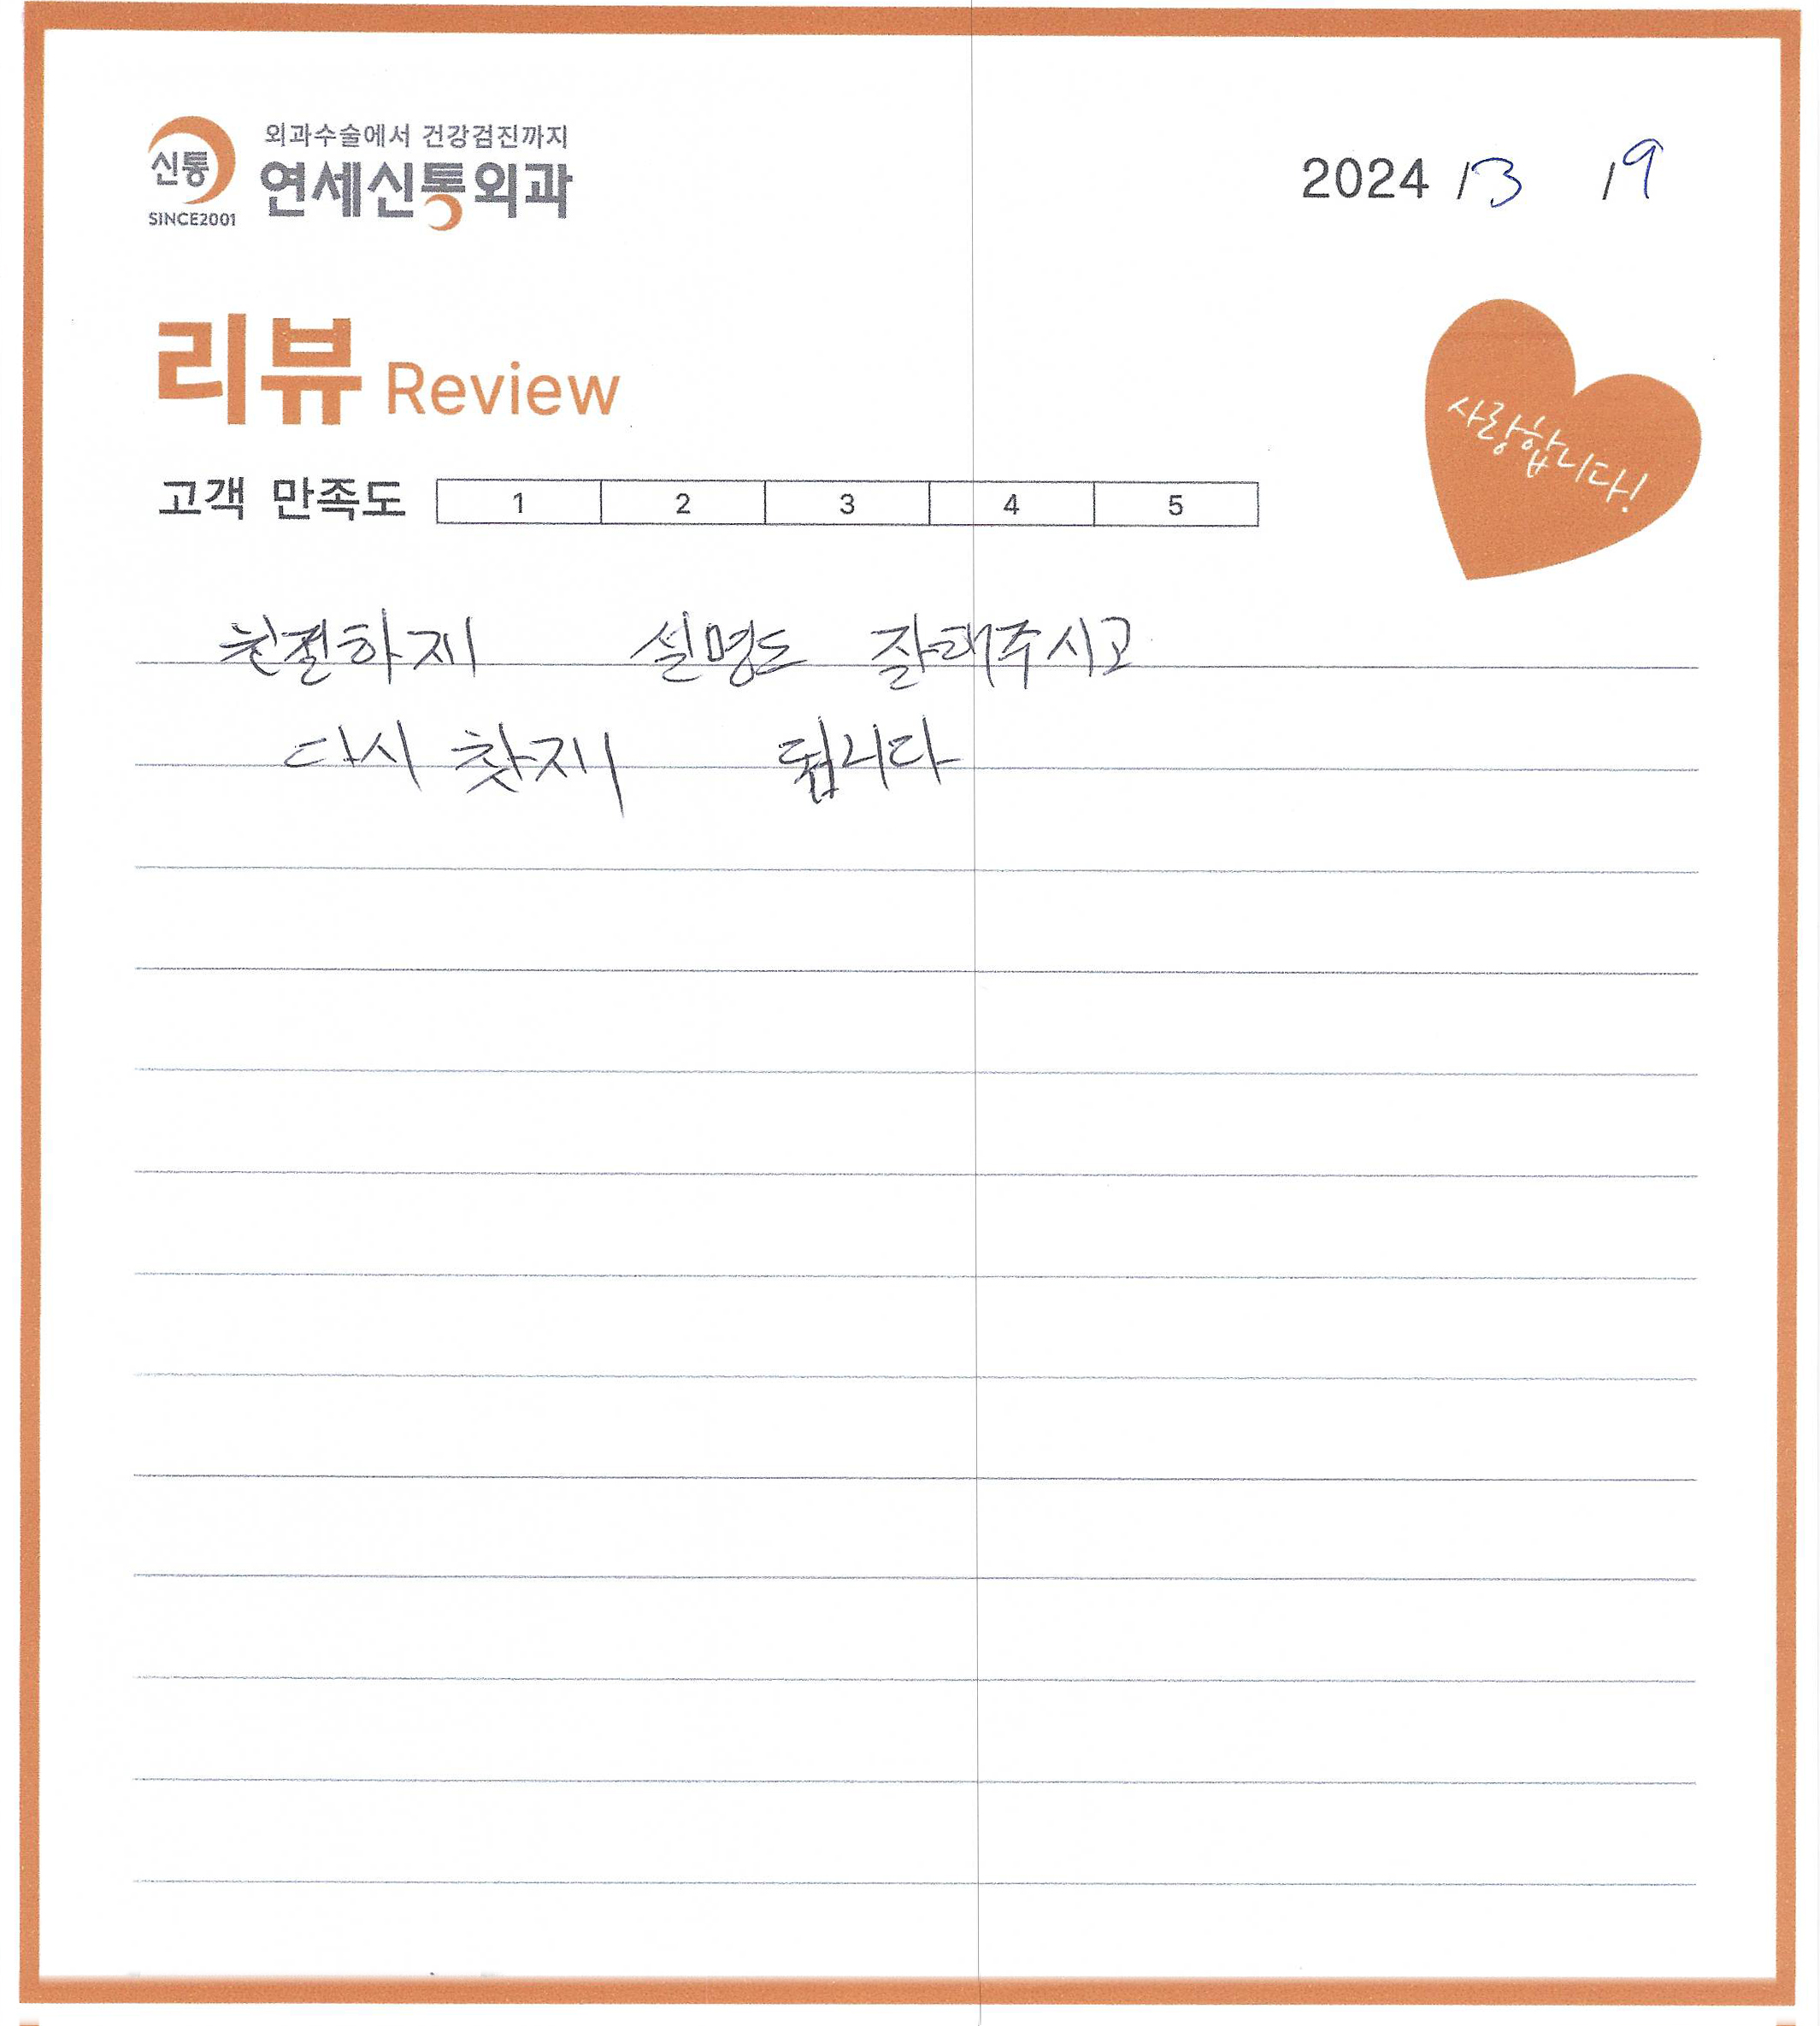 외과수술에서 건강검진까지
신통 연세신통외과
SINCE2001
2024 /3 /9
리뷰 Review
사랑합니다!
고객 만족도 1 2 3 4 5
친절하게 설명도 잘해주시고
다시 찾게 됩니다